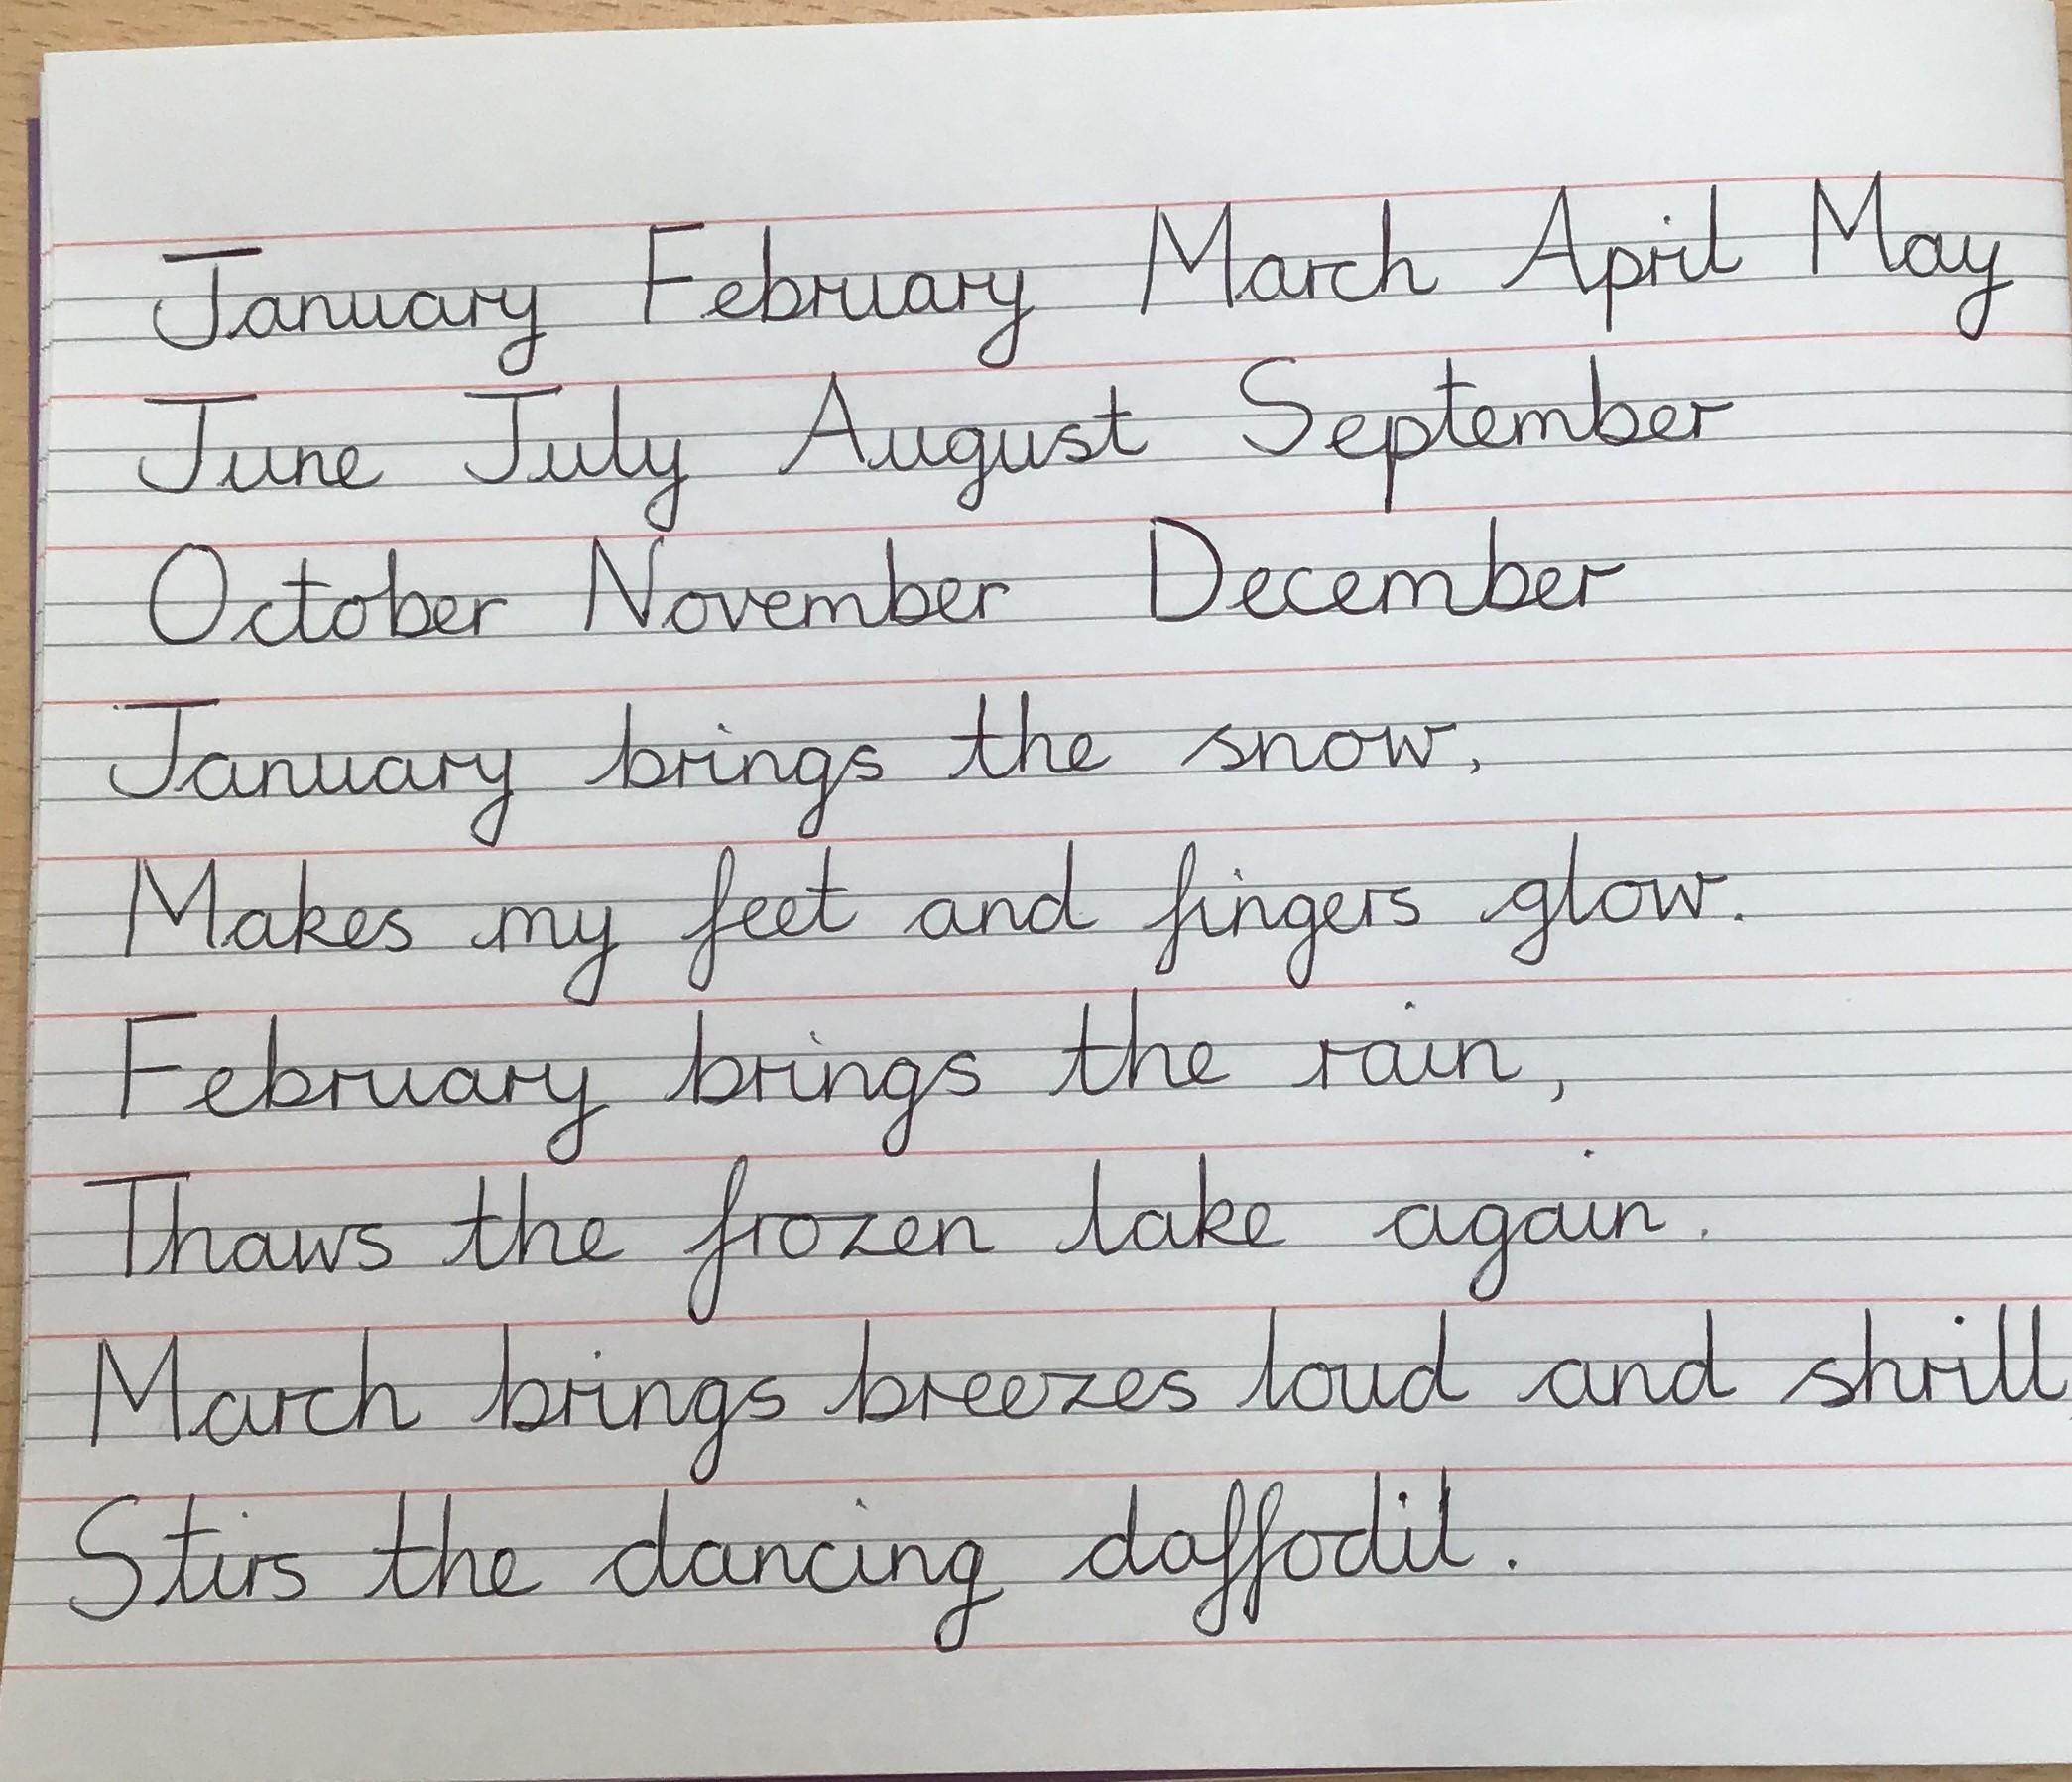 January February March April May
June July August September
October November December
January brings the snow,
Makes my feet and fingers glow.
February brings the rain,
Thaws the frozen lake again.
March brings breezes loud and shrill
Stirs the dancing daffodil.